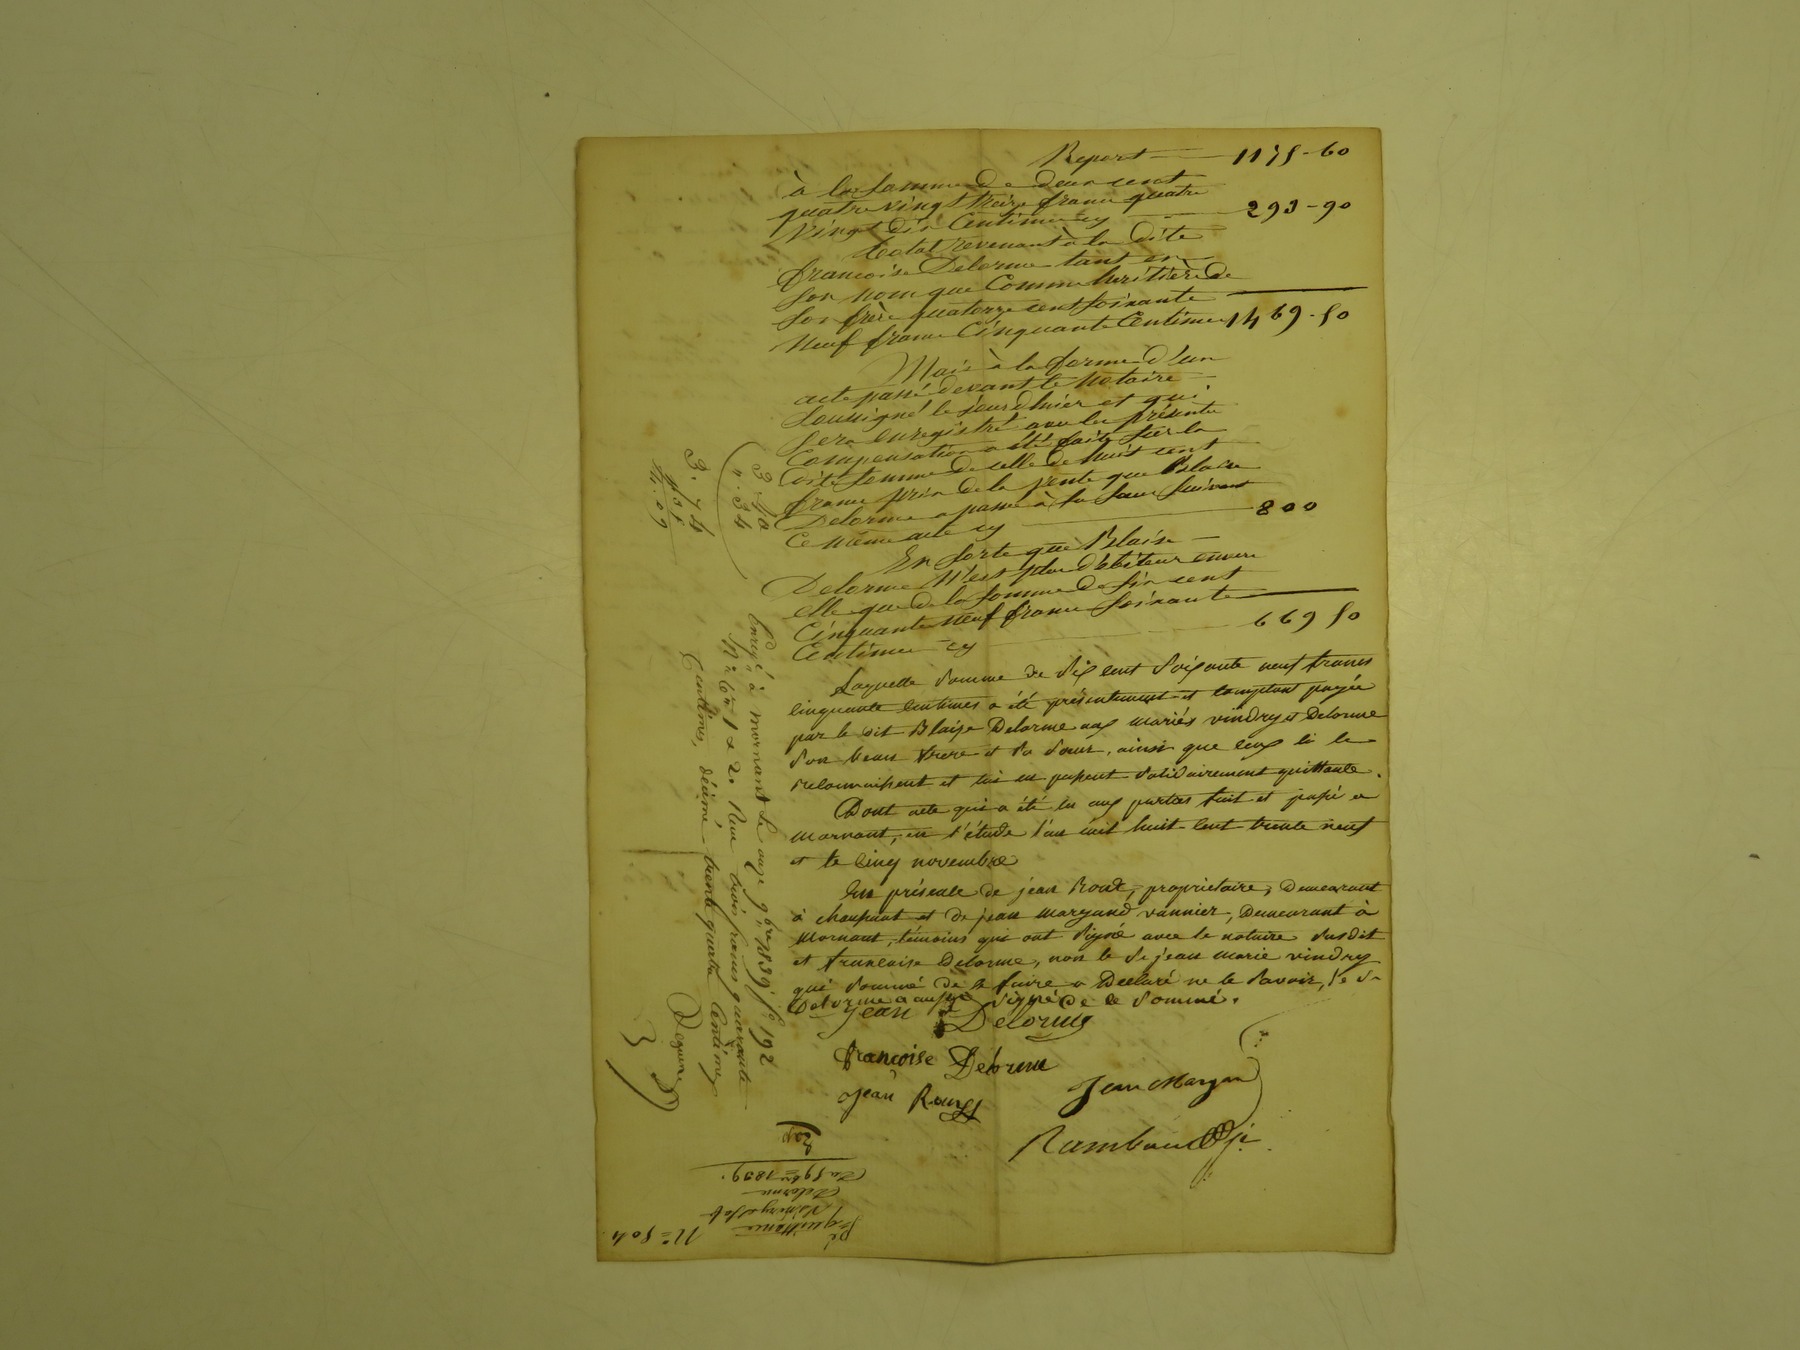 Report — 1175-60
à la somme de deux cent
quatre vingt treize francs quatre
vingt dix centimes cy — 293-90
total revenant à la dite
françoise Delorme tant en
son nom que comme héritière de
son frère quatorze cent soixante
neuf francs cinquante centimes 1469-50
Mais à la forme d'un
acte passé devant le notaire
soussigné le jour d'hier et qui
sera enregistré avec les présentes
compensation a été faite sur la
dite somme de celle de huit cent
francs prix de la vente que Blaise
Delorme a passé à sa sœur suivant
ce même acte cy — 800
En sorte que Blaise
Delorme n'est plus débiteur envers
elle que de la somme de six cent
cinquante neuf francs soixante
centimes cy — 669 50
Laquelle somme de six cent soixante neuf francs
cinquante centimes a été présentement et comptant payée
par le dit Blaise Delorme aux mariés vindry et Delorme
son beau frere et sa sœur, ainsi que ceux ci le
reconnaissent et lui en passent solidairement quittance.
Dont acte qui a été lu aux parties fait et passé a
mornant, en l'étude l'an mil huit cent trente neuf
et le cinq novembre
En présence de jean Rout, propriétaire, Demeurant
à chaussant et de jean margand vannier, Demeurant à
Mornant, témoins qui ont signé avec le notaire susdit
et françoise Delorme, non le d. jean marie vindry
qui sommé de le faire a Déclaré ne le savoir, le d.
Delorme a aussi signé de ce sommé.
jean Delorme
françoise Delorme
jean
Jean Margan
Rambaud
3.40
".34
3.74
Enregé à mornant le onze 9bre 1839, fo 192
Ro cn 1 & 2. Reçu trois francs quarante
Centimes, décime trente quatre centimes
No 504
quittance
vindry et
Delorme
Du 5 9bre 1839.